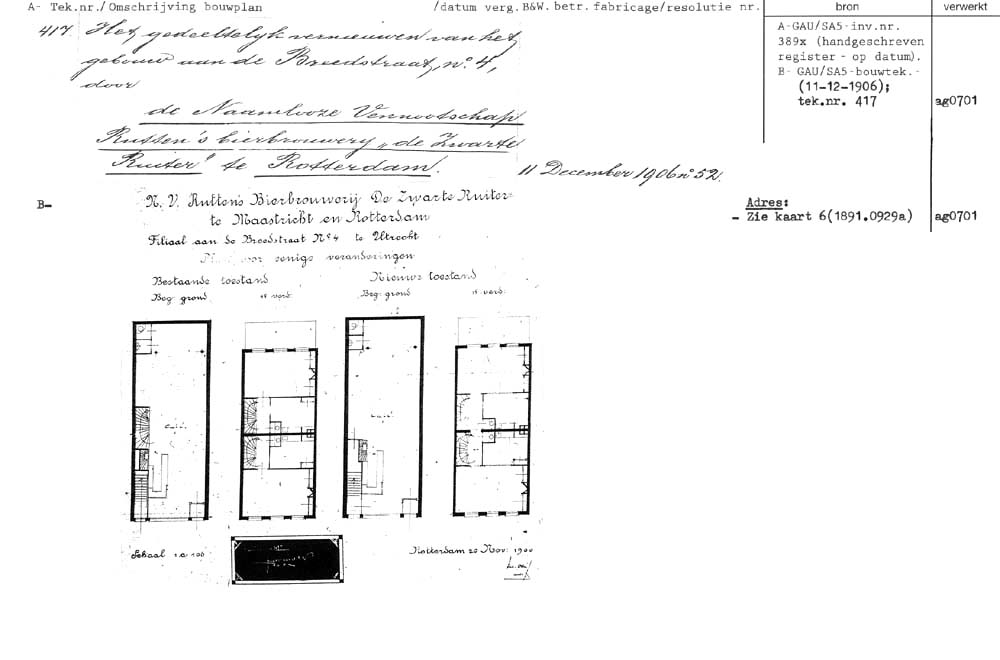 A- Tek.nr./Omschrijving bouwplan /datum verg.B&W.betr.fabricage/resolutie nr. bron verwerkt
417 Het gedeeltelyk vernieuwen van het
gebouw aan de Breedstraat, no. 4,
door
de Naamlooze Vennootschap
Rutten's bierbrouwery „de Zwarte
Ruiter" te Rotterdam.
11 December 1906 no 52.
A-GAU/SA5-inv.nr.
389x (handgeschreven
register - op datum).
B- GAU/SA5-bouwtek.-
(11-12-1906);
tek.nr. 417 ag0701
B-
N. V. Rutten's Bierbrouwerij De Zwarte Ruiter
te Maastricht en Rotterdam
Filiaal aan de Breedstraat No 4 te Utrecht
voor eenige veranderingen
Adres:
- Zie kaart 6(1891.0929a) ag0701
Bestaande toestand Nieuwe toestand
Beg: grond 1e verd: Beg: grond 1e verd:
Schaal 1 à 100
Rotterdam 20 Nov: 1906